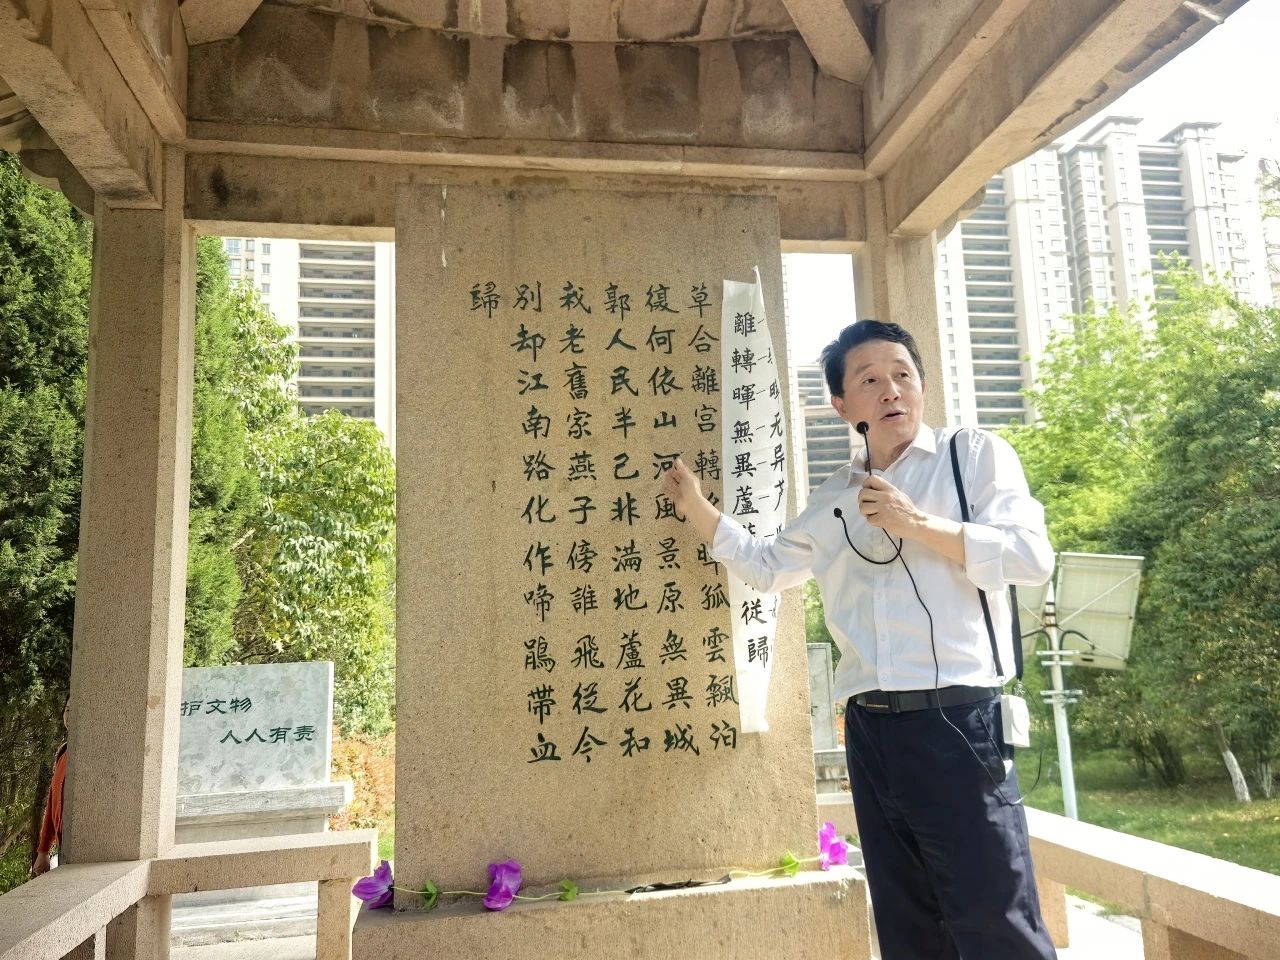 无异芦
離轉暉無異蘆
從歸
草合離宮轉
暉孤雲飄泊
復何依山河風景原無異城
郭人民半已非滿地蘆花和
我老舊家燕子傍誰飛從今
別却江南路化作啼鵑帶血
歸
护文物
人人有责